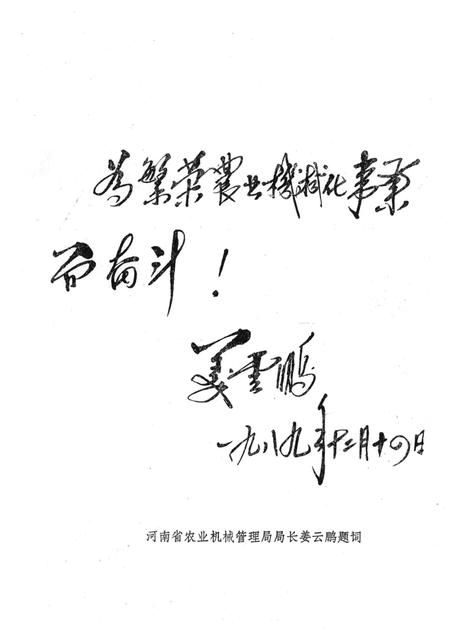 为繁荣農业機械化事業
而奋斗！
姜雲鹏
一九八九年十二月十四日
河南省农业机械管理局局长姜云鹏题词